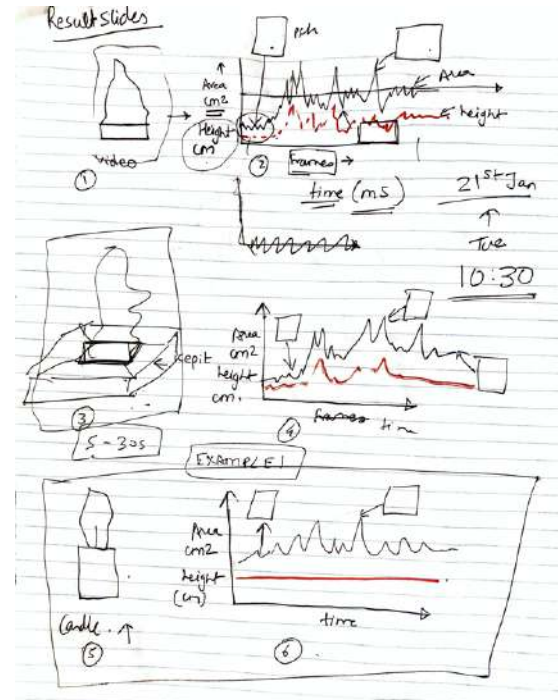 Result slides
Area
cm2
Height
cm
Area
height
video
①
②
frames →
time (ms)
21st Jan
Tue
10:30
③
5-30s
Area
cm2
height
cm.
④
frames time
EXAMPLE 1
Area
cm2
height
(cm)
time
Candle.
⑤
⑥